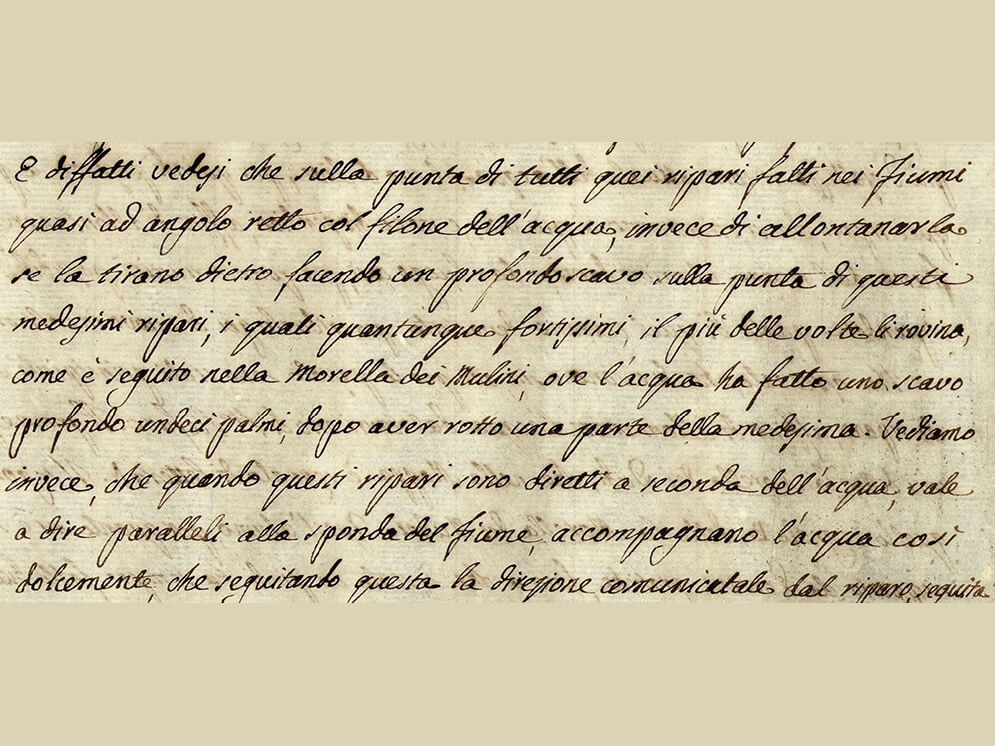 E diffatti vedesi che sulla punta di tutti quei ripari fatti nei Fiumi
quasi ad angolo retto col filone dell'acqua, invece di allontanarla
se la tirano dietro facendo un profondo scavo sulla punta di questi
medesimi ripari, i quali quantunque fortissimi, il più delle volte li rovina,
come è seguito nella Morella dei Mulini, ove l'acqua ha fatto uno scavo
profondo undeci palmi, dopo aver rotto una parte della medesima. Vediamo
invece, che quando questi ripari sono diretti a seconda dell'acqua, vale
a dire paralleli alla sponda del fiume, accompagnano l'acqua così
dolcemente, che seguitando questa la direzione comunicatale dal riparo, seguita